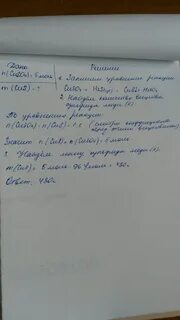 Дано: Решение
n(CuSO₄) = 5 моль 1. Запишем уравнение реакции
m(CuS) - ? CuSO₄ + H₂S = CuS + H₂SO₄
2. Находим количество вещества
сульфида меди (II)
По уравнению реакции
n(CuSO₄) : n(CuS) = 1:1 (смотрим коэффициенты
перед этими веществами)
Значит n(CuSO₄) = n(CuS) = 5 моль
3. Находим массу сульфида меди (II)
m(CuS) = 5 моль · 96 г/моль = 480г
Ответ: 480г